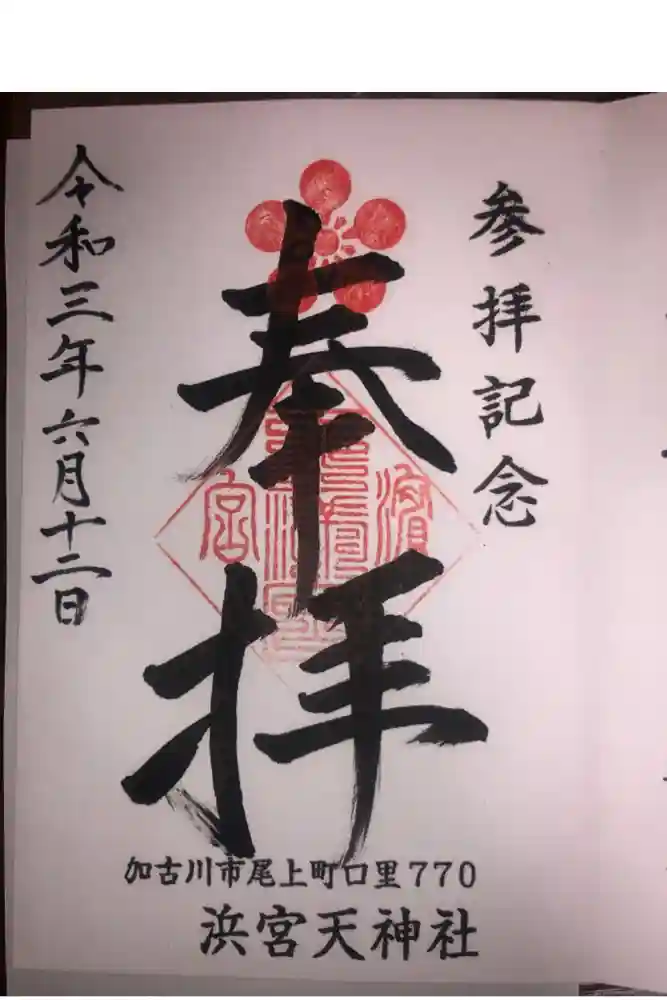 参拝記念
奉拝
令和三年六月十二日
加古川市尾上町口里770
浜宮天神社